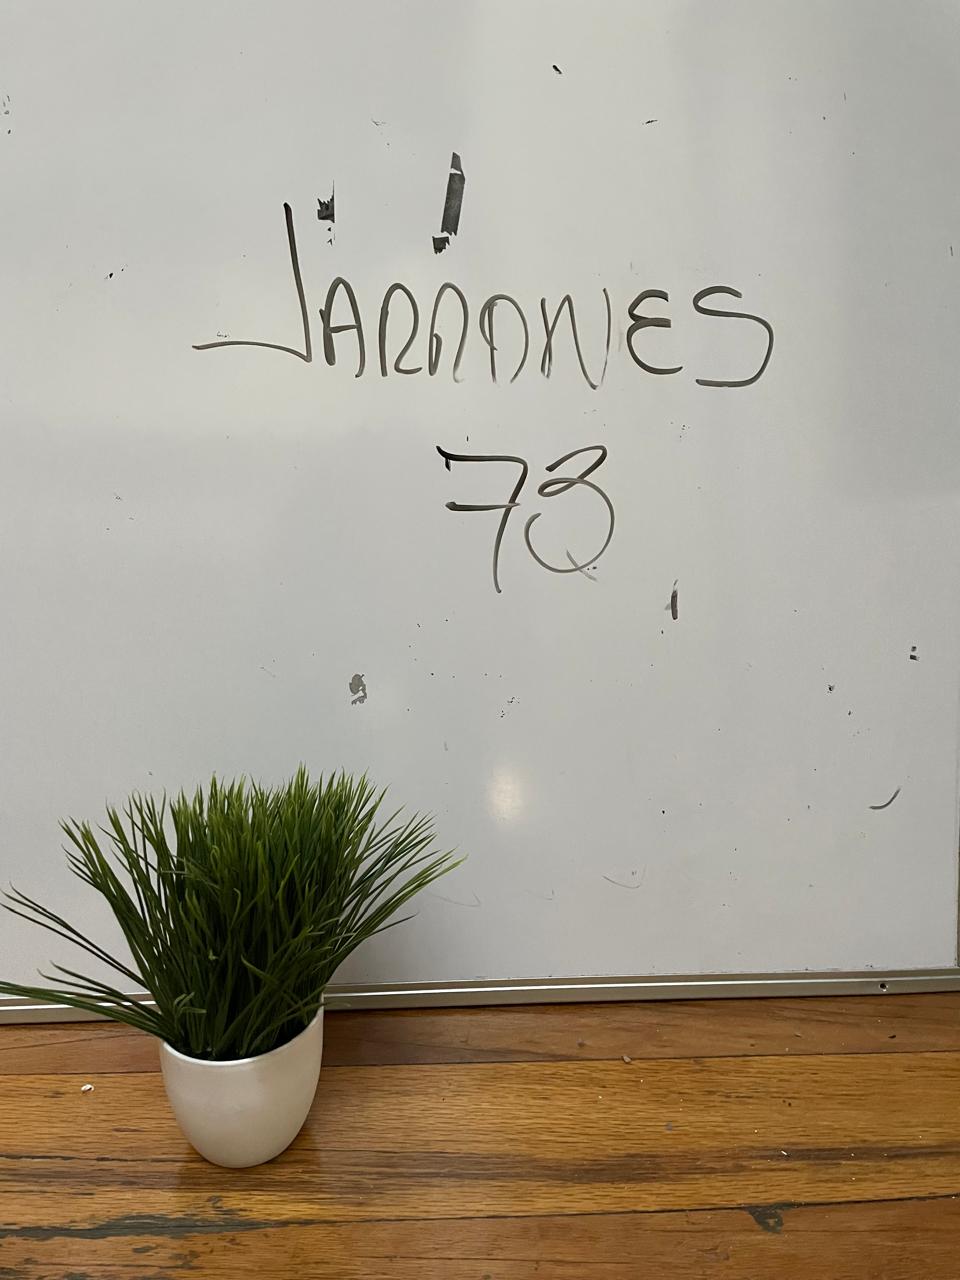 JARRONES
73